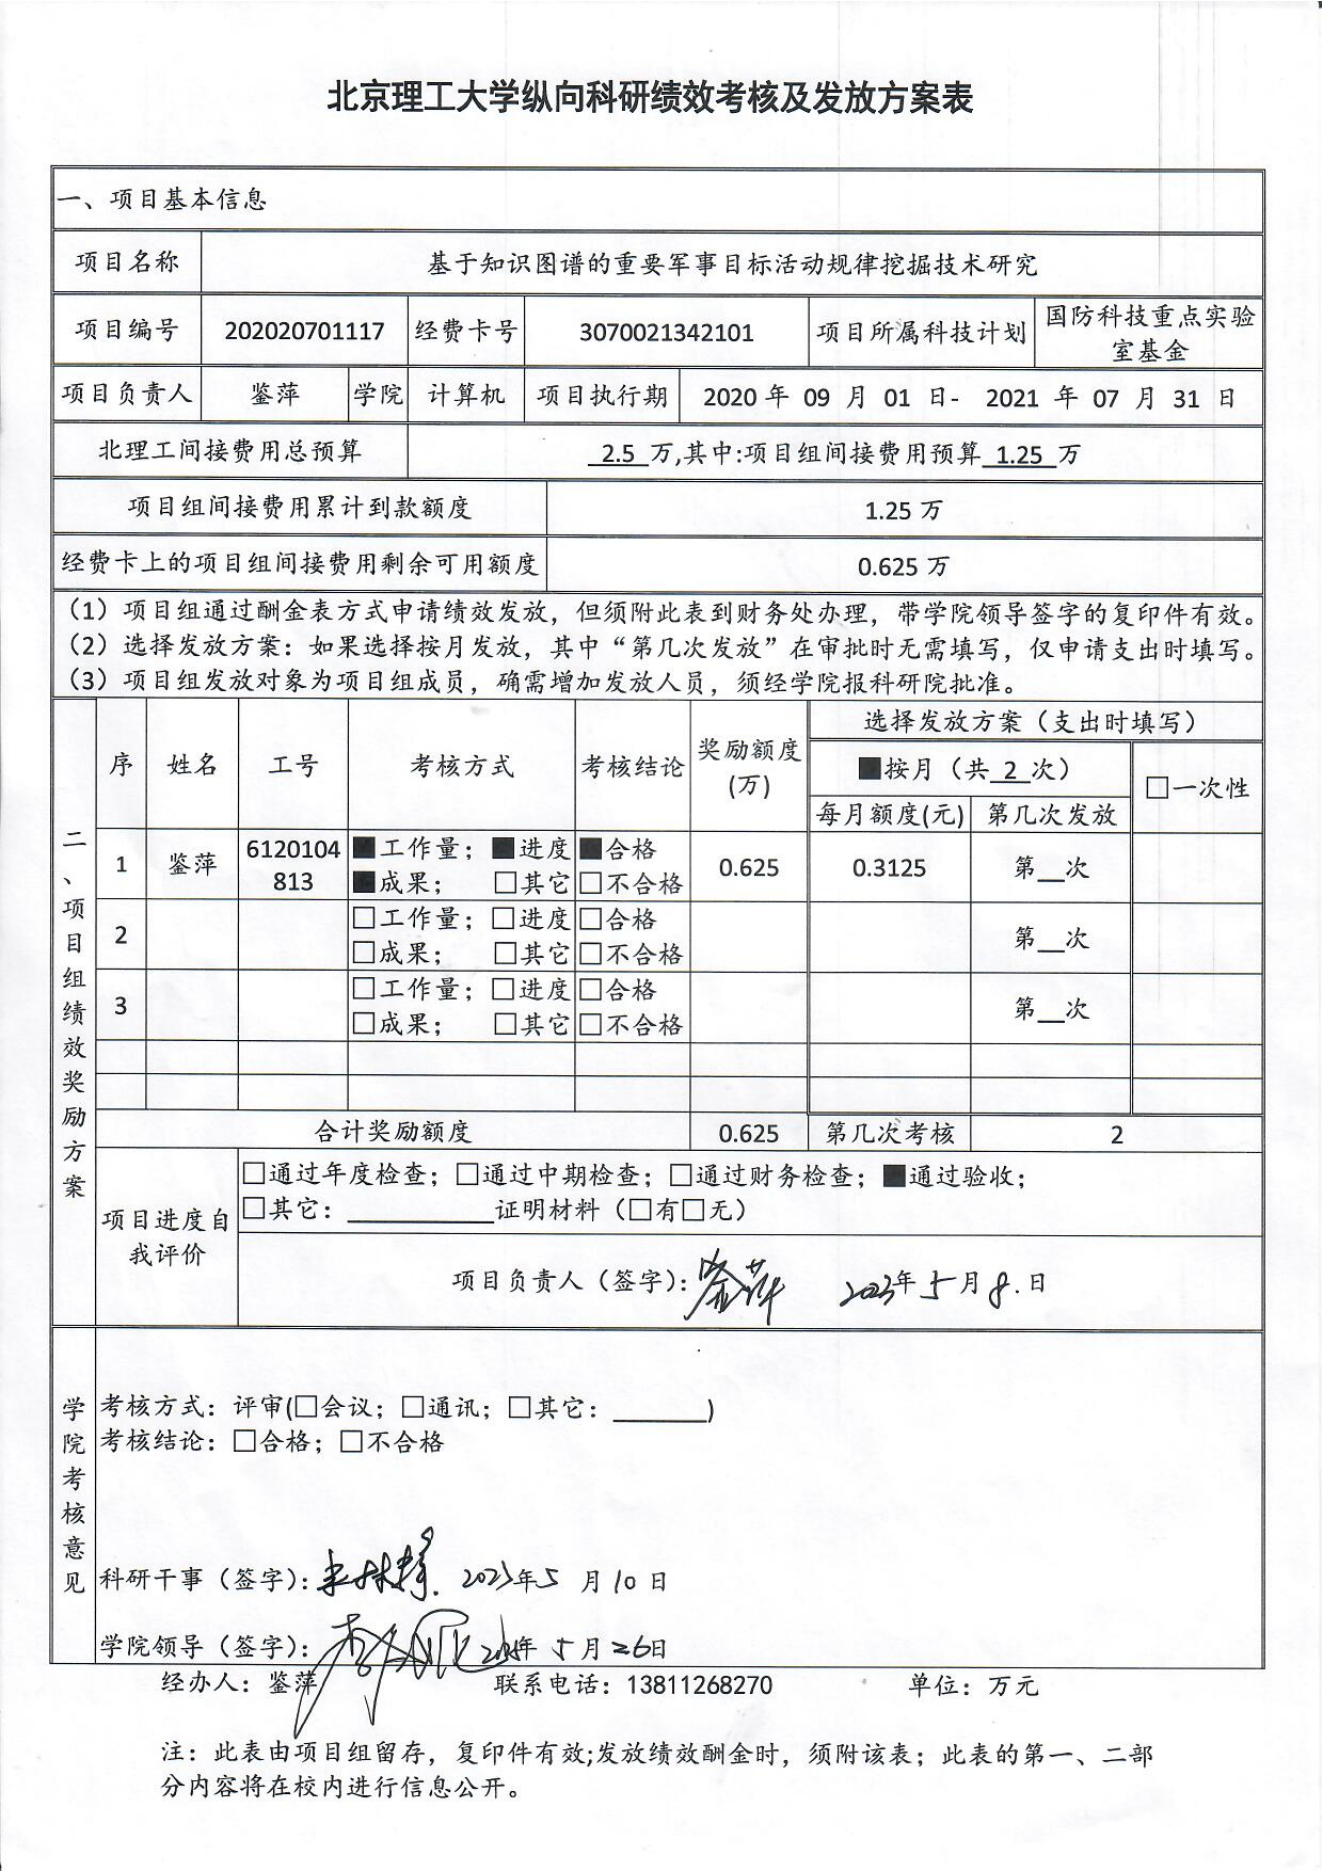 北京理工大学纵向科研绩效考核及发放方案表
一、项目基本信息
项目名称 基于知识图谱的重要军事目标活动规律挖掘技术研究
项目编号 202020701117 经费卡号 3070021342101 项目所属科技计划 国防科技重点实验
室基金
项目负责人 鉴萍 学院 计算机 项目执行期 2020 年 09 月 01 日- 2021 年 07 月 31 日
北理工间接费用总预算 2.5 万,其中:项目组间接费用预算 1.25 万
项目组间接费用累计到款额度 1.25 万
经费卡上的项目组间接费用剩余可用额度 0.625 万
（1）项目组通过酬金表方式申请绩效发放，但须附此表到财务处办理，带学院领导签字的复印件有效。
（2）选择发放方案：如果选择按月发放，其中“第几次发放”在审批时无需填写，仅申请支出时填写。
（3）项目组发放对象为项目组成员，确需增加发放人员，须经学院报科研院批准。
二、项目组绩效奖励方案
序 姓名 工号 考核方式 考核结论 奖励额度
(万)
选择发放方案（支出时填写）
■按月（共 2 次） □一次性
每月额度(元) 第几次发放
1 鉴萍 6120104
813
■工作量； ■进度 ■合格
■成果； □其它 □不合格
0.625 0.3125 第__次
2 □工作量； □进度 □合格
□成果； □其它 □不合格
第__次
3 □工作量； □进度 □合格
□成果； □其它 □不合格
第__次
合计奖励额度 0.625 第几次考核 2
项目进度自
我评价
□通过年度检查；□通过中期检查；□通过财务检查；■通过验收；
□其它：__________证明材料（□有□无）
项目负责人（签字）：鉴萍 2023年 5 月 8 日
学院考核意见
考核方式：评审(□会议；□通讯；□其它：______)
考核结论：□合格；□不合格
科研干事（签字）： 2023年 5 月 10 日
学院领导（签字）： 年 5 月 26 日
经办人：鉴萍 联系电话：13811268270 单位：万元
注：此表由项目组留存，复印件有效;发放绩效酬金时，须附该表；此表的第一、二部
分内容将在校内进行信息公开。